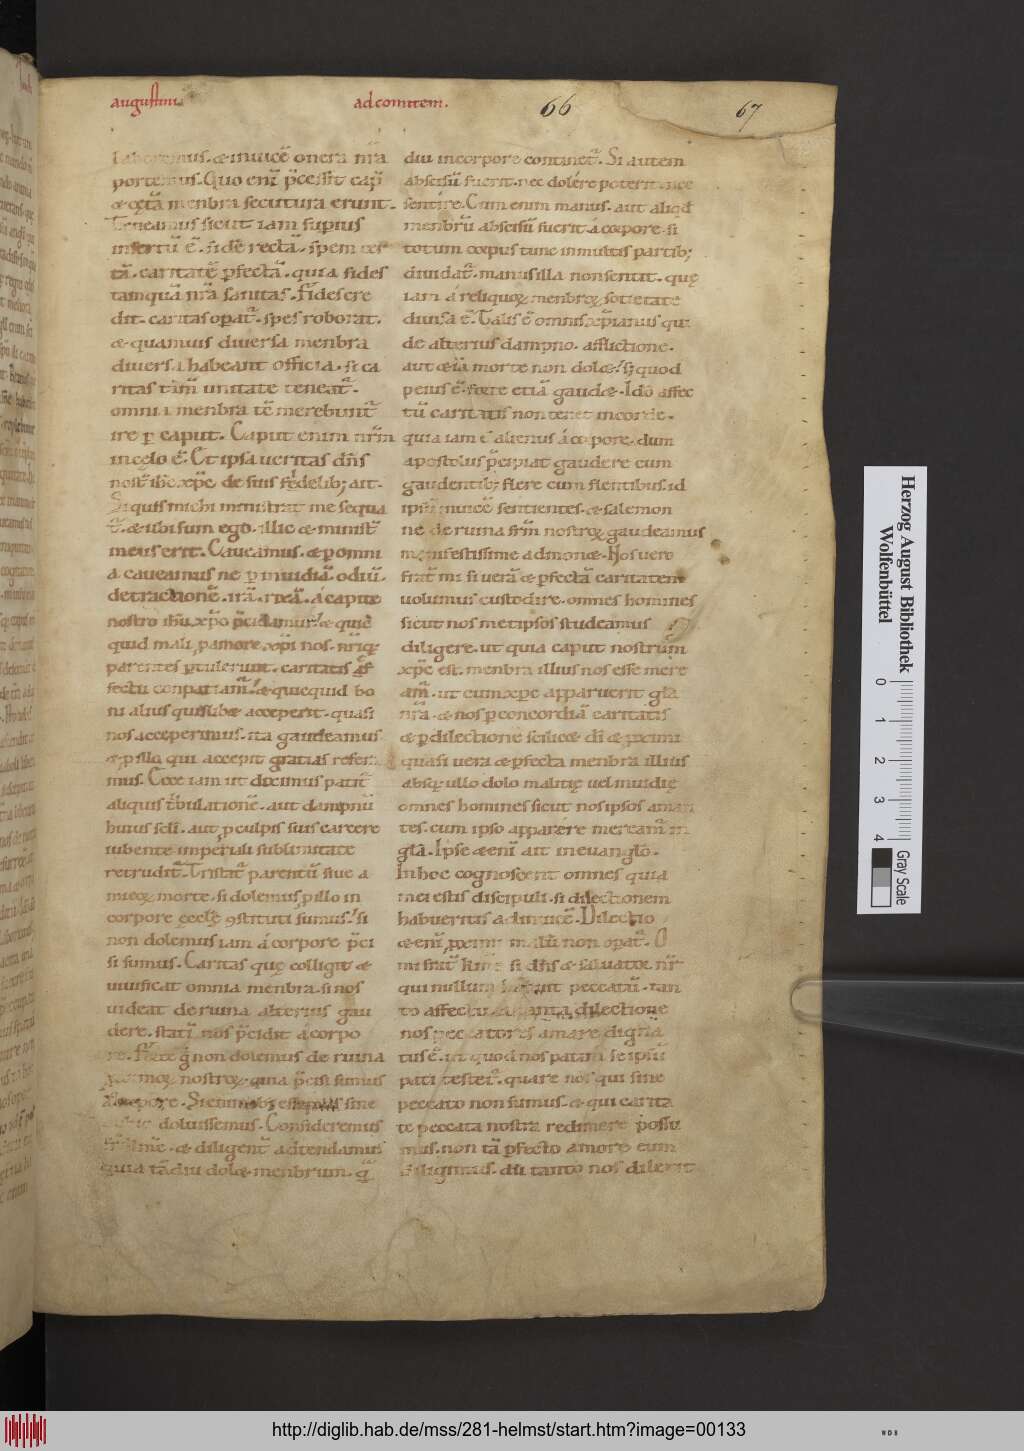 augustini. ad comitem. 66 67
laboremus. & inuicē onera nr̄a
portemus. Quo eni p̄cessit cap̄
& cęta menbra secutura erunt.
Teneamus sicut iam supius
insertū ē. fidē rectā. spem cer
tā. caritatē pfectā. quia fides
tamquā nr̄a sanitas. Fides cre
dit. caritas opat. spes roborat.
& quamuis diuersa menbra
diuersa habeant officia. si ca
ritas tam̄ unitate teneat.
omnia menbra tē merebunt
ire p caput. Caput enim nrm
in cęlo ē. Et ipsa ueritas dn̄s
nost ihc xpc de suis fidelib; ait.
Si quis michi ministrat me sequa
t. & ubi sum ego. illic & minist
meus erit. Caueamus. & p omni
a caueamus ne p inuidiā. odiū.
detractionē. irā. á capite
nostro ihu xpo p̄cidamur. & quē
quid mali p amore xpi nos. nriq;
parentes ptulerunt. caritatis
fectu conpatiam. & quequid bo
ni alius quislibet acceperit. quasi
nos acceperimus. ita gaudeamus
& p illo qui accepit gratias refera
mus. Ecce iam ut diximus patit
aliquis tbulationē. aut dampnū
huius scli. aut p culpis suis carcere
iubente imperiali sublimitate
retrudit. Tristat parentū siue a
micoꝝ morte. si dolemus p illo in
corpore ęcclę 9stituti sumus. si
non dolemus iam á corpore p̄ci
si sumus. Caritas quę colligit &
uiuificat omnia menbra. si nos
uideat de ruina alterius gau
dere. statī nos p̄cidit á corpo
re. non dolemus de ruina
nostroꝝ. quia p̄cisi sumus
sine
doluissemus. Consideremus
& diligent adtendamus
quia tādiu dol& menbrum. q
diu in corpore continet. Si autem
abscisū fuerit. nec dolére poterit. nec
sentire. Cum enim manus. aut aliqd
menbrū abscisū fuerit á corpore. si
totum corpus tunc in multis partib;
diuidat. manus illa non sentit. quę
iam á reliquoꝝ menbroꝝ sotietate
diuisa ē. Talis ē omnis xpianus qui
de alterius dampno. afflictione.
aut &iā morte non dol&. s; quod
peius ē. forte etiā gaud&. Ido affec
tū caritatis non tenet in corde.
quia iam ē alienus á corpore. dum
apostolus p̄cipiat gaudere cum
gaudentib; flere cum flentibus. id
ipsū inuicē sentientes. & salemon
ne de ruina frm nostroꝝ gaudeamus
manifestissime admon&. Nos uero
frat mi si uerā & pfectā caritatem
uolumus custodire. omnes homines
sicut nos metipsos studeamus
diligere. ut quia caput nostrūm
xpc est. menbra illius nos esse mere
am. ut cum xpc apparuerit glā
nr̄a. & nos p concordiā caritatis
& p dilectionē scilic& di & pximi
quasi uera & pfecta menbra illius
absq; ullo dolo malitię uel inuidię
omnes homines sicut nos ipsos aman
tes. cum ipso apparére mereamī in
glā. Ipse &enī ait in euangło.
In hoc cognoscent omnes quia
mei estis discipuli. si dilectionem
habueritis adinuicē. Dilectio
&eni pximi malū non opat. O
mi frat si dn̄s & saluator nr
qui nullum habuit peccatū. tan
to affectu & tanta dilectione
nos peccatores amare digna
tus ē. ut quod nos patim se ipsū
pati testet. quare nos qui sine
peccato non sumus. & qui carita
te peccata nostra redimere possu
mus. non tā pfecto amore eum
diligimus. dū tanto nos dilexit
Herzog August Bibliothek
Wolfenbüttel
0 1 2 3 4
Gray Scale
http://diglib.hab.de/mss/281-helmst/start.htm?image=00133